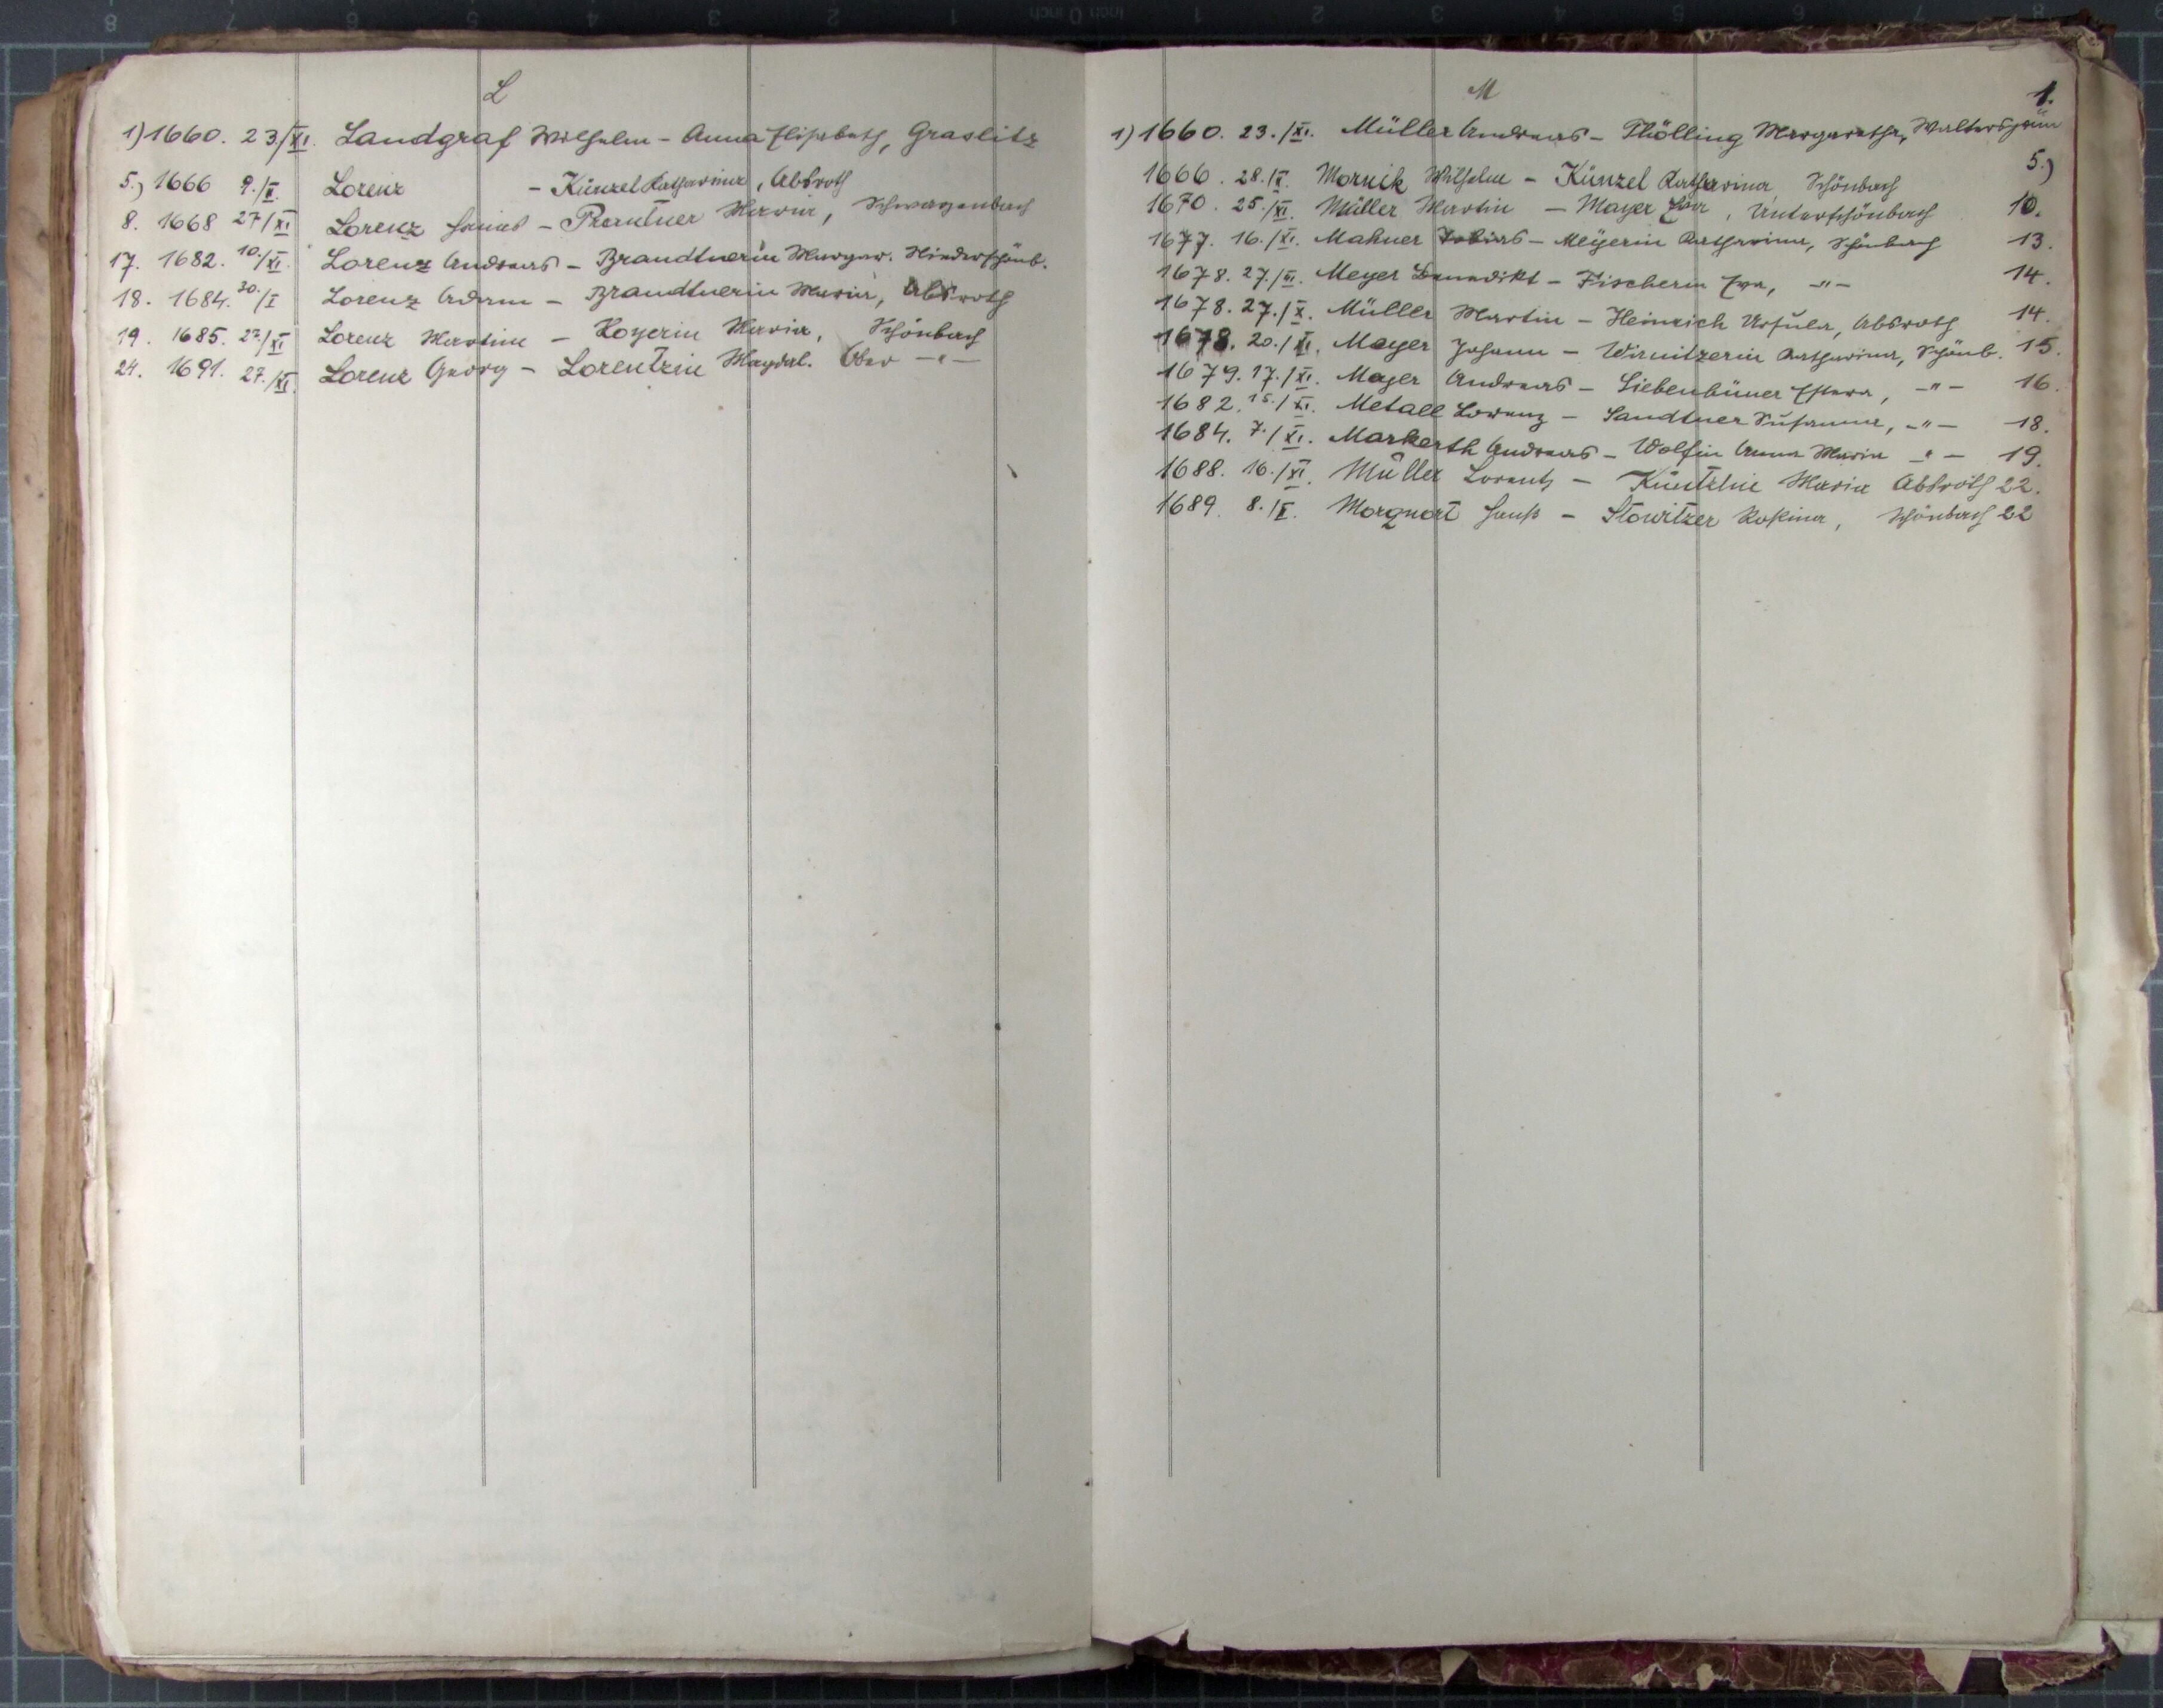 L
1) 1660. 23./XI. Landgraf Wilhelm - Anna Elisabeth, Graslitz
5.) 1666 9./X. Lorenz - Künzel Katharina, Absroth
8. 1668 27/XI Lorenz - Prantner Maria, Schwarzenbach
17. 1682. 10./XI. Lorenz Andreas - Brandtnerin Margar. Niederschönb.
18. 1684. 30./I Lorenz Adam - Brandtnerin Maria, Absroth
19. 1685. 27/XI Lorenz Martin - Maria, Schönbach
24. 1691. 27./XI. Lorenz Georg - Lorentzin Magdal. Ober -"-
M
1) 1660. 23./XI. Müller Andreas - Margaretha, Waltersgrün 1.
1666. 28./X. Mornik Wilhelm - Künzel Katharina Schönbach 5.)
1670. 25./XI. Müller Martin - Mayer Eva, Unterschönbach 10.
1677. 16./XI. Mahner Tobias - Meÿerin Katharina, Schönbach 13.
1678. 27./VI. Meyer Benedikt - Fischerin Eva, -"- 14.
1678. 27./X. Müller Martin - Heinrich Ursula, Absroth 14.
1678. 20./XI. Mayer Johann - Wirnitzerin Katharina, Schönb. 15.
1679. 17./XI. Mayer Andreas - -"- 16.
1682. 15./XI. Metall Lorenz - Sandtner Susanna, -"- 18.
1684. 7./XI. Markerth Andreas - Wolfin Anna Maria -"- 19.
1688. 16./XI. Müller Lorentz - Küntzlin Maria Absroth 22.
1689. 8./X. Morgnart Hanß - Stowitzer Rosina, Schönbach 22